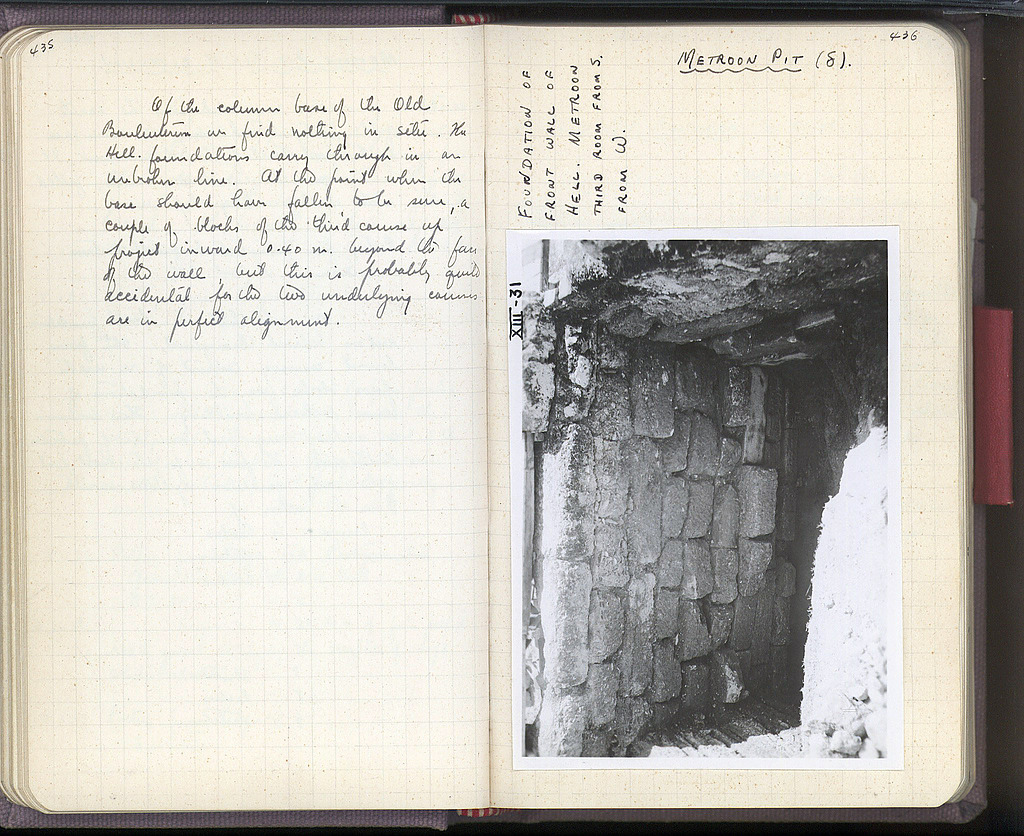 435
Of the column base of the Old
Bouleuterion we find nothing in situ. The
Hell. foundations carry through in an
unbroken line. At the point where the
base should have fallen to be sure, a
couple of blocks of the third course up
project inward 0.40 m. beyond the face
of the wall, but this is probably quite
accidental for the two underlying courses
are in perfect alignment.
436
METROON PIT (δ).
FOUNDATION OF
FRONT WALL OF
HELL. METROON
THIRD ROOM FROM S.
FROM W.
XIII-31